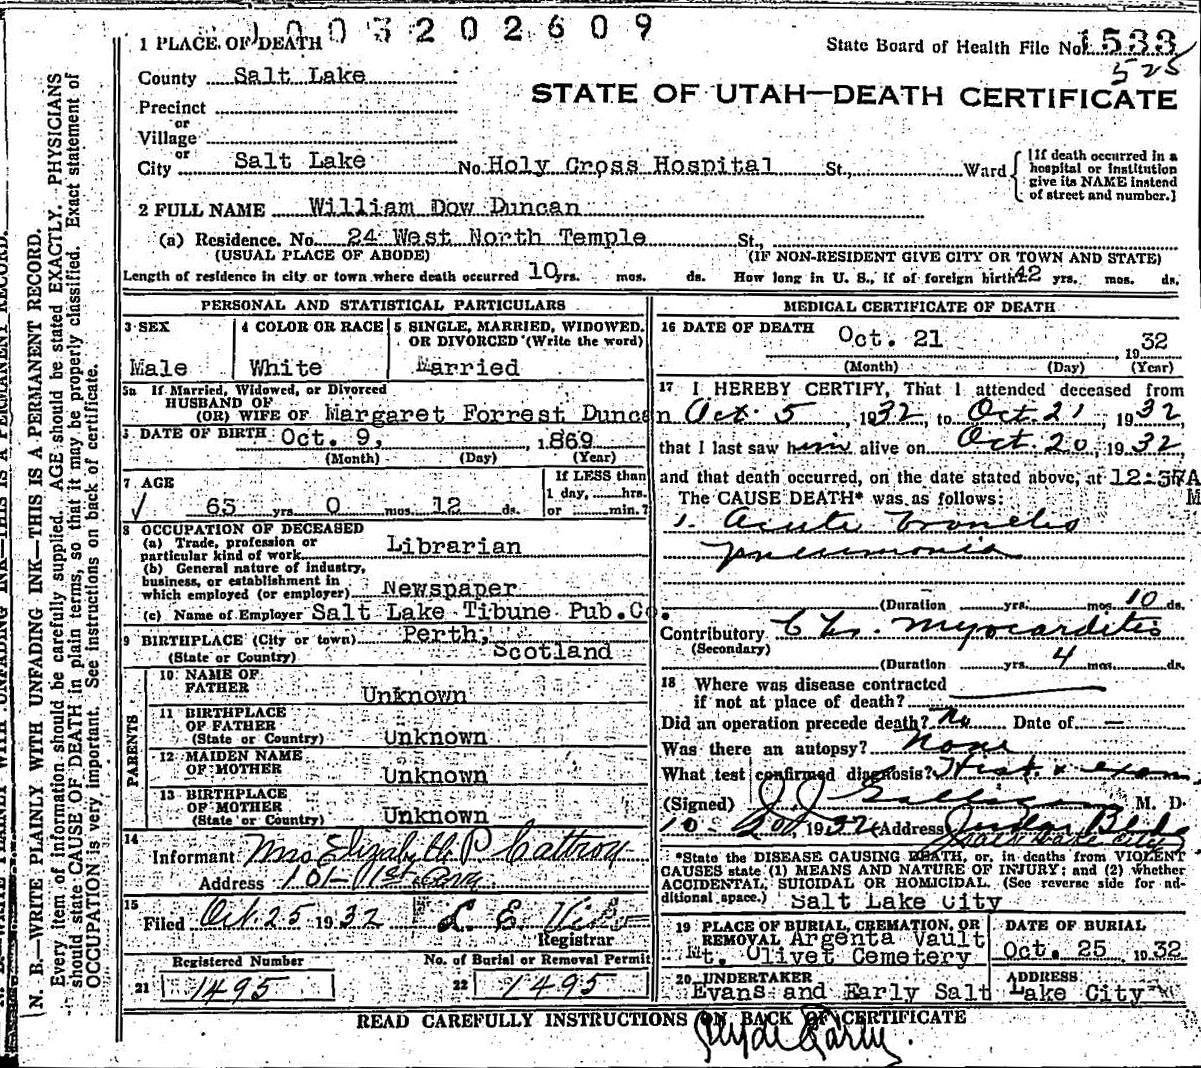 1003202609
State Board of Health File No. 1533
525
STATE OF UTAH—DEATH CERTIFICATE
1 PLACE OF DEATH
County Salt Lake
Precinct
or
Village
or
City Salt Lake No. Holy Cross Hospital St., Ward
[If death occurred in a
hospital or institution
give its NAME instead
of street and number.]
2 FULL NAME William Dow Duncan
(a) Residence. No. 24 West North Temple St.,
(USUAL PLACE OF ABODE) (IF NON-RESIDENT GIVE CITY OR TOWN AND STATE)
Length of residence in city or town where death occurred 10 yrs. mos. ds. How long in U. S., if of foreign birth 42 yrs. mos. ds.
PERSONAL AND STATISTICAL PARTICULARS
3 SEX
Male
4 COLOR OR RACE
White
5 SINGLE, MARRIED, WIDOWED,
OR DIVORCED (Write the word)
Married
5a If Married, Widowed, or Divorced
HUSBAND OF
(OR) WIFE OF Margaret Forrest Duncan
DATE OF BIRTH Oct. 9, 1869
(Month) (Day) (Year)
7 AGE
63 yrs. 0 mos. 12 ds.
If LESS than
1 day, hrs.
or min.?
8 OCCUPATION OF DECEASED
(a) Trade, profession or
particular kind of work Librarian
(b) General nature of industry,
business, or establishment in
which employed (or employer) Newspaper
(c) Name of Employer Salt Lake Tibune Pub.Co.
9 BIRTHPLACE (City or town) Perth,
(State or Country) Scotland
PARENTS
10 NAME OF
FATHER Unknown
11 BIRTHPLACE
OF FATHER
(State or Country) Unknown
12 MAIDEN NAME
OF MOTHER Unknown
13 BIRTHPLACE
OF MOTHER
(State or Country) Unknown
14
Informant Mrs Elizabeth P
Address 101- 1st Ave
15
Filed Oct. 25 1932 L. E.
Registrar
Registered Number
21 1495
No. of Burial or Removal Permit
22 1495
MEDICAL CERTIFICATE OF DEATH
16 DATE OF DEATH Oct. 21, 1932
(Month) (Day) (Year)
17 I HEREBY CERTIFY, That I attended deceased from
Oct. 5, 1932, to Oct. 21, 1932,
that I last saw him alive on Oct. 20, 1932,
and that death occurred, on the date stated above, at 12:37A
M
The CAUSE DEATH* was as follows:
1. Acute Broncho
pneumonia
(Duration yrs. mos. 10 ds.
Contributory Chr. Myocarditis
(Secondary)
(Duration yrs. 4 mos. ds.
18 Where was disease contracted
if not at place of death?
Did an operation precede death? No Date of —
Was there an autopsy? None
What test confirmed diagnosis? Hist. & exam
(Signed) J. J. Galligan M. D.
10- 1932 (Address Judge Bldg
Salt Lake City
*State the DISEASE CAUSING DEATH, or, in deaths from VIOLENT
CAUSES state (1) MEANS AND NATURE OF INJURY; and (2) whether
ACCIDENTAL, SUICIDAL OR HOMICIDAL. (See reverse side for ad-
ditional space.) Salt Lake City
19 PLACE OF BURIAL, CREMATION, OR
REMOVAL Argenta Vault
Mt. Olivet Cemetery
DATE OF BURIAL
Oct. 25 1932
20 UNDERTAKER
Evans and Early Salt Lake City
ADDRESS
READ CAREFULLY INSTRUCTIONS ON BACK OF CERTIFICATE
Clyde Early.
N. B.—WRITE PLAINLY WITH UNFADING INK—THIS IS A PERMANENT RECORD.
Every item of information should be carefully supplied. AGE should be stated EXACTLY. PHYSICIANS
should state CAUSE OF DEATH in plain terms, so that it may be properly classified. Exact statement of
OCCUPATION is very important. See instructions on back of certificate.